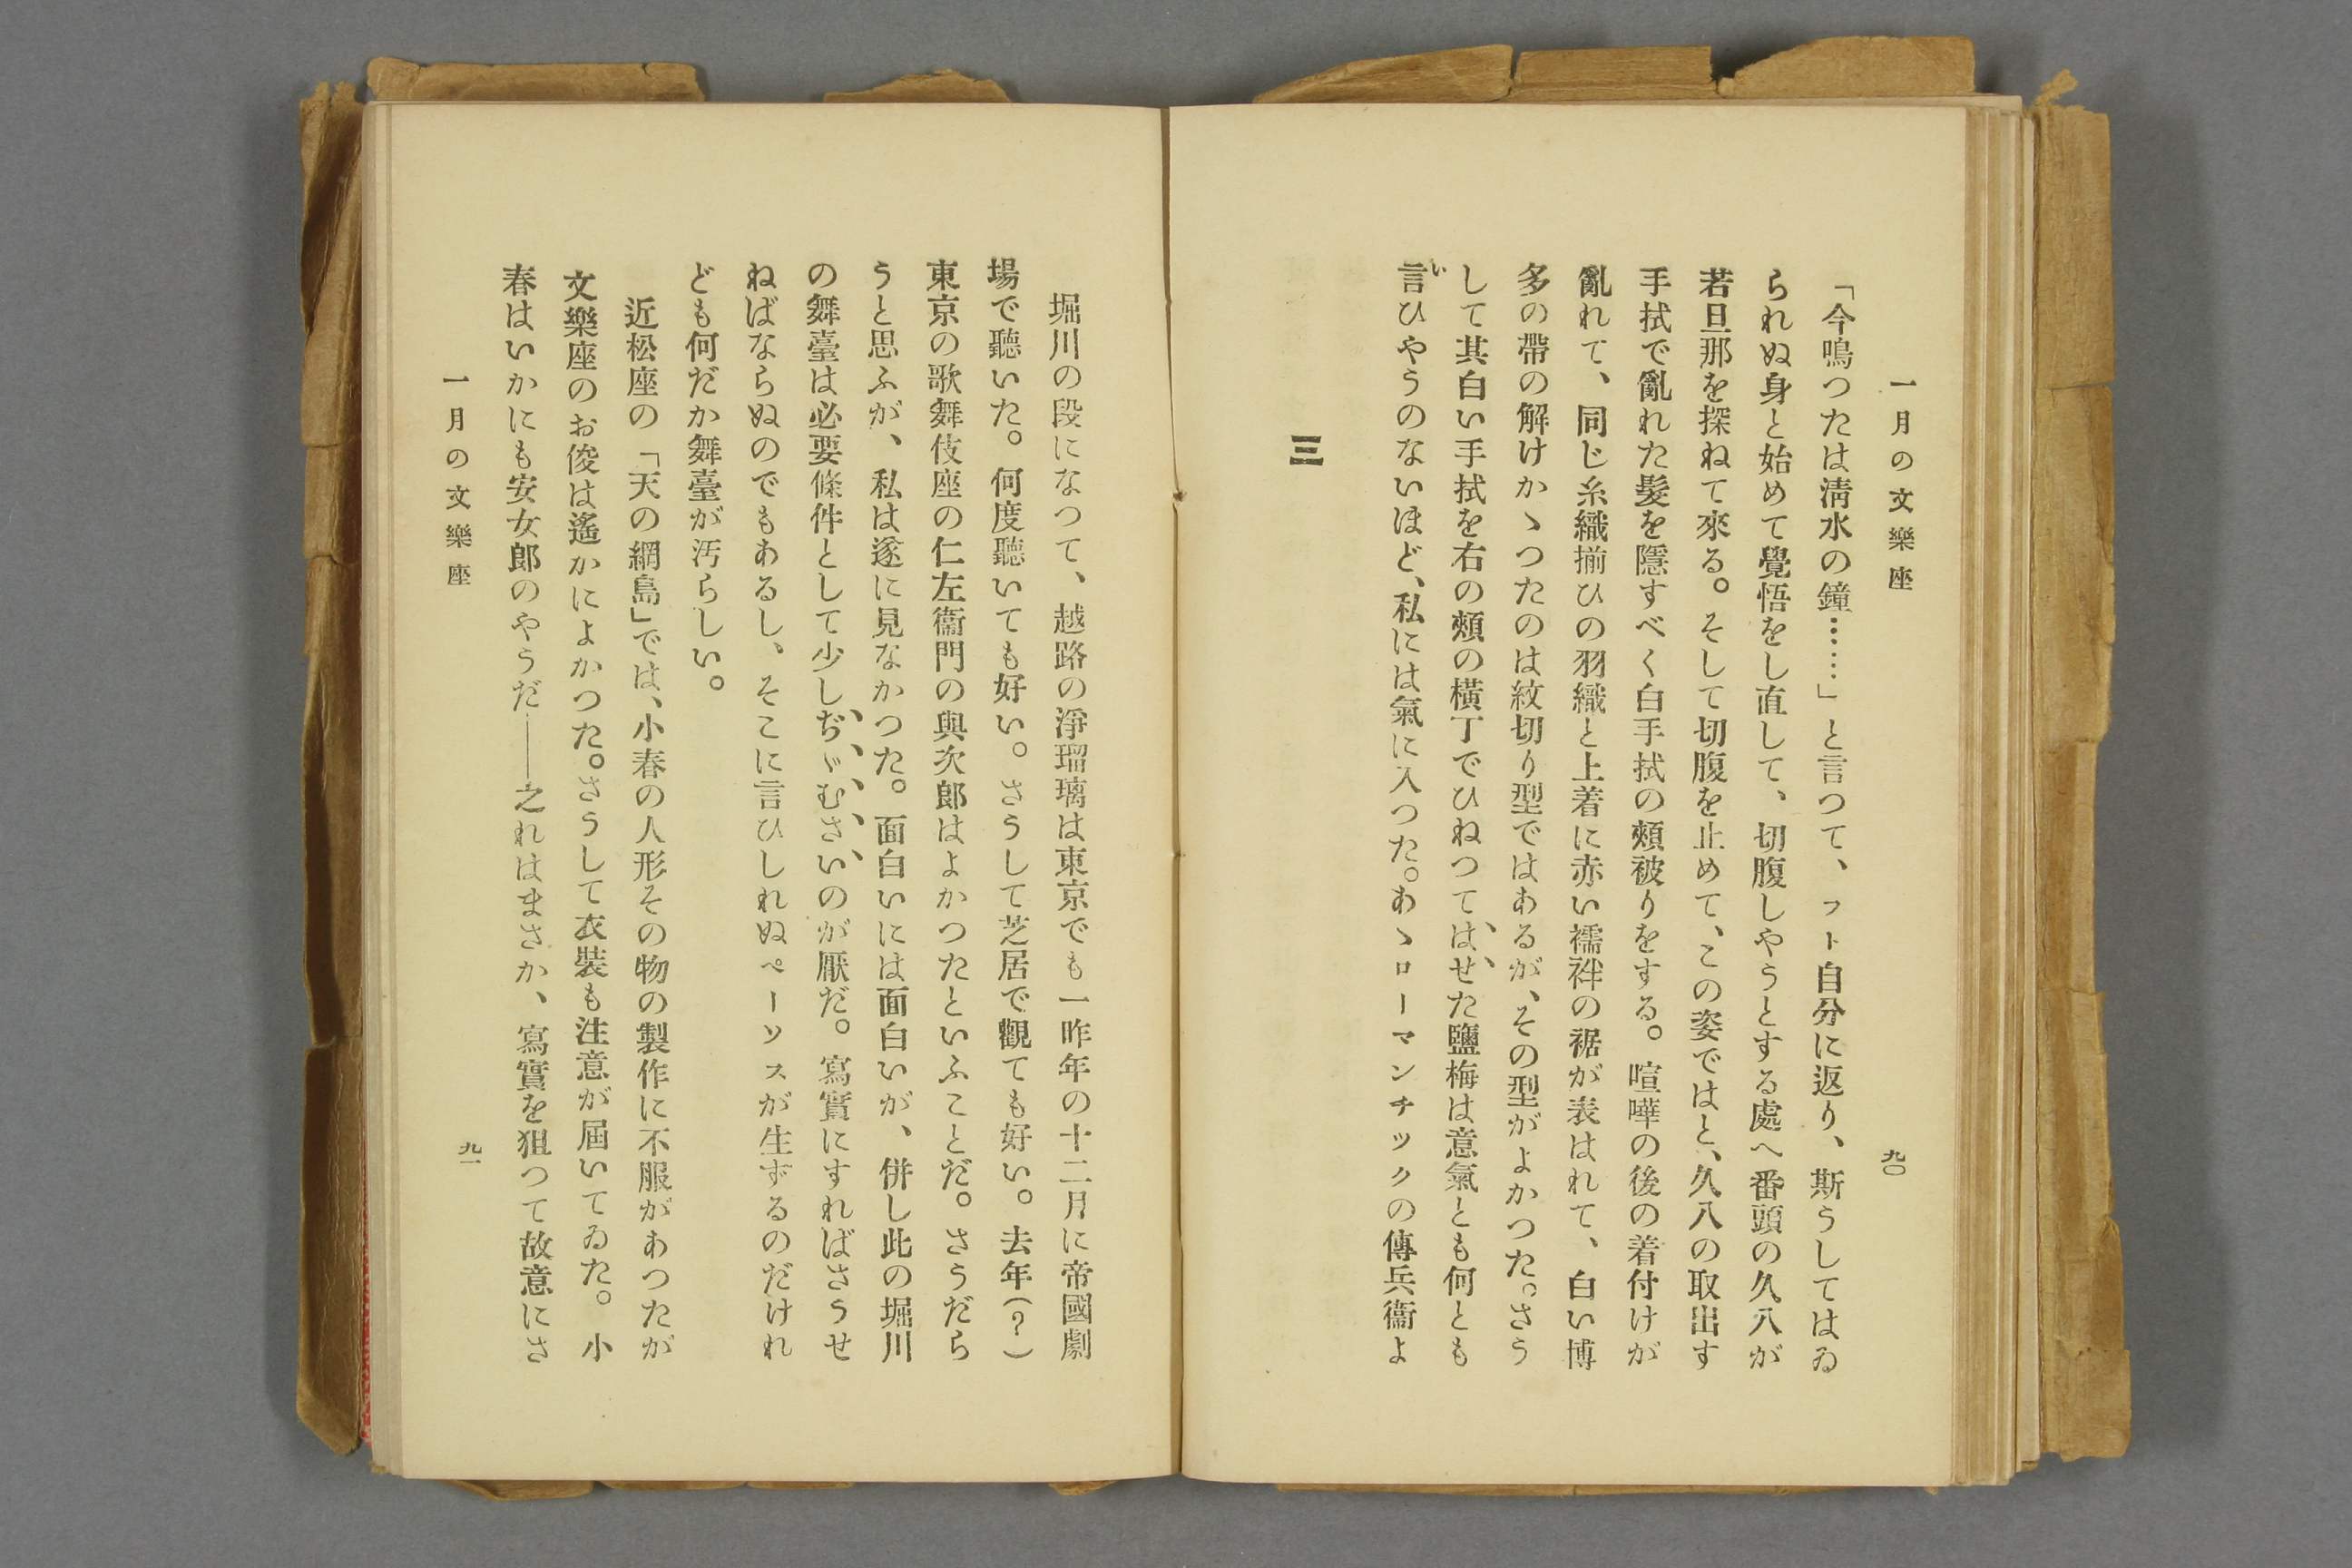 一月の文樂座
九〇
「今鳴つたは淸水の鐘……」と言つて、フト自分に返り、斯うしてはゐ
られぬ身と始めて覺悟をし直して、切腹しやうとする處へ番頭の久八が
若旦那を探ねて來る。そして切腹を止めて、この姿ではと、久八の取出す
手拭で亂れた髮を隱すべく白手拭の頰被りをする。喧嘩の後の着付けが
亂れて、同じ糸織揃ひの羽織と上着に赤い襦袢の裾が表はれて、白い博
多の帶の解けかゝつたのは紋切り型ではあるが、その型がよかつた。さう
して其白い手拭を右の頰の橫丁でひねつてはせた鹽梅は意氣とも何とも
言ひやうのないほど、私には氣に入つた。あゝローマンチックの傳兵衞よ
三
堀川の段になつて、越路の淨瑠璃は東京でも一昨年の十二月に帝國劇
場で聽いた。何度聽いても好い。さうして芝居で觀ても好い。去年(?)
東京の歌舞伎座の仁左衞門の與次郎はよかつたといふことだ。さうだら
うと思ふが、私は遂に見なかつた。面白いには面白いが、併し此の堀川
の舞臺は必要條件として少しぢゞむさいのが厭だ。寫實にすればさうせ
ねばならぬのでもあるし、そこに言ひしれぬペーソスが生ずるのだけれ
ども何だか舞臺が汚らしい。
近松座の「天の網島」では、小春の人形その物の製作に不服があつたが
文樂座のお俊は遙かによかつた。さうして衣裝も注意が屆いてゐた。小
春はいかにも安女郎のやうだ――之れはまさか、寫實を狙つて故意にさ
一月の文樂座
九一